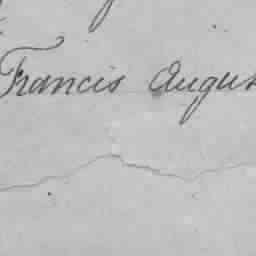 Francis Augus